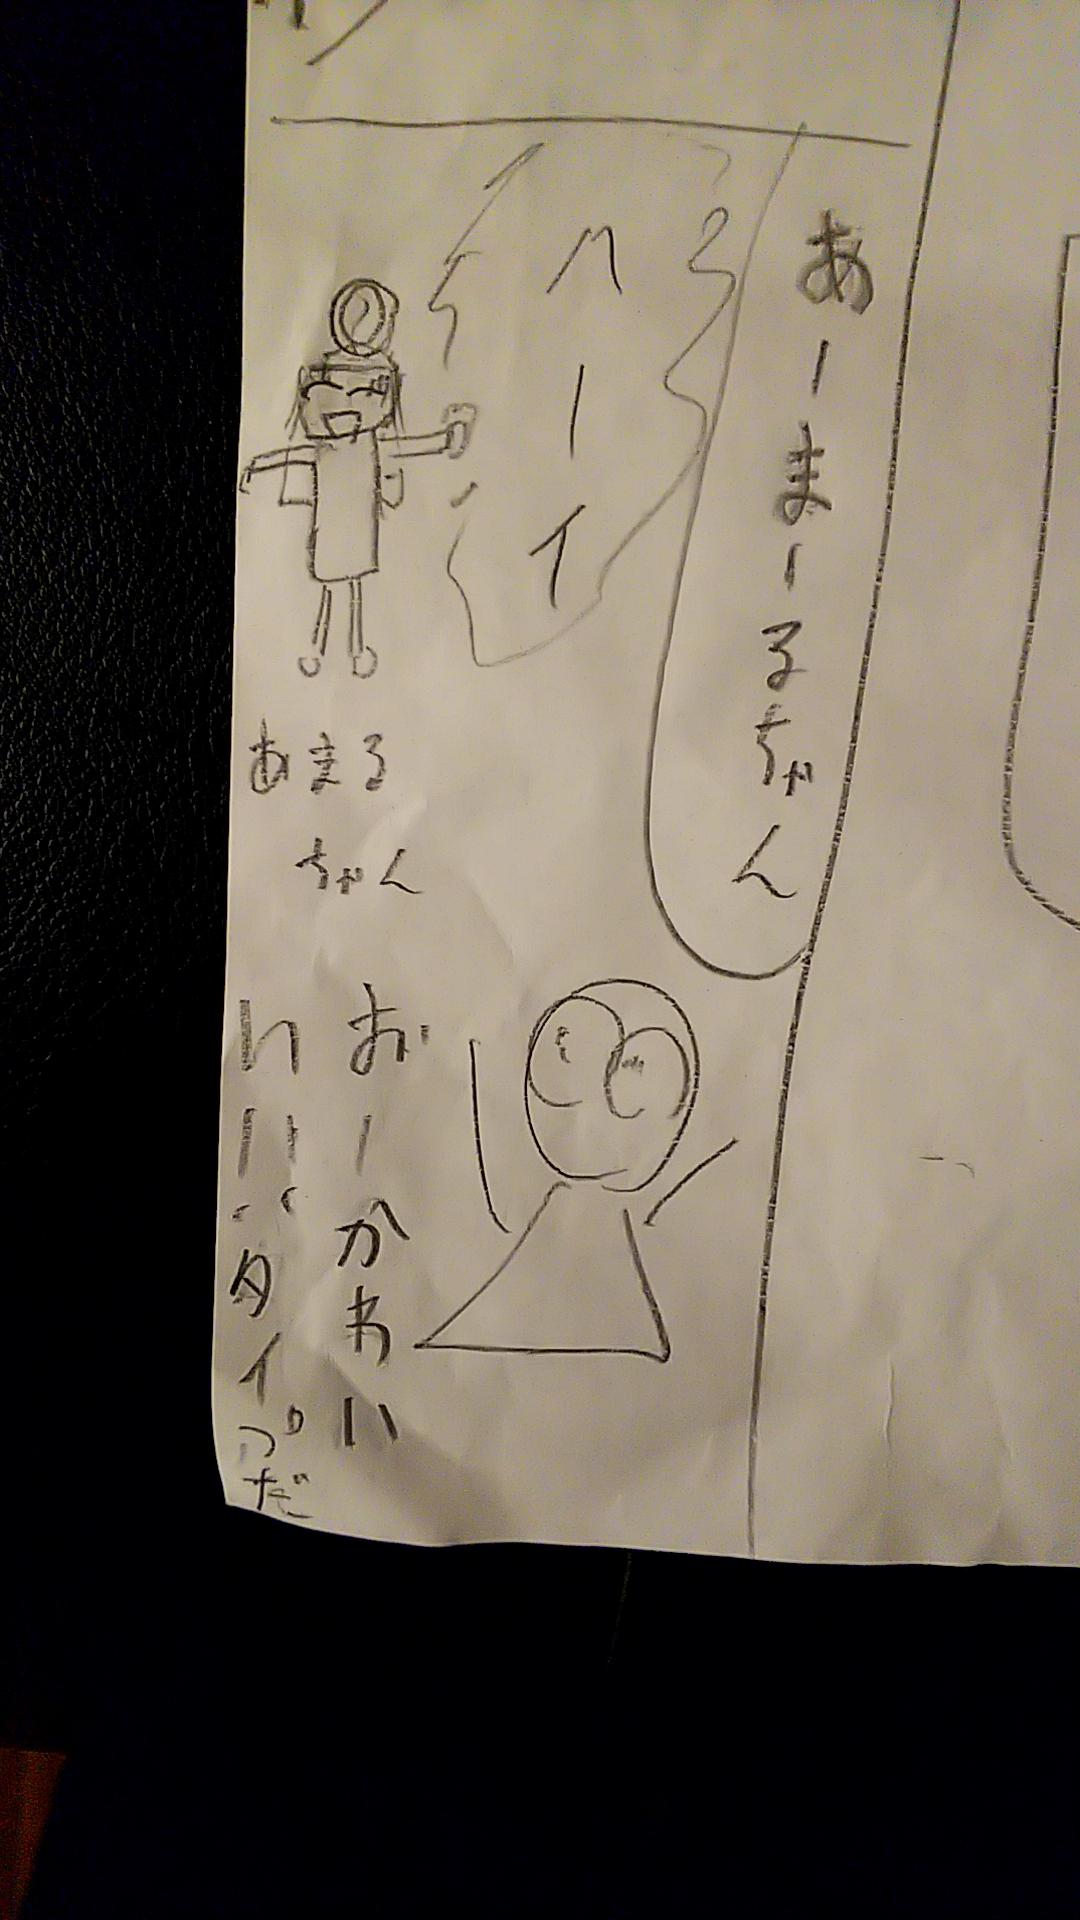 あーまーるちゃん
ヘーイ
あまる
ちゃん
おーかわい
いい…タイプだ